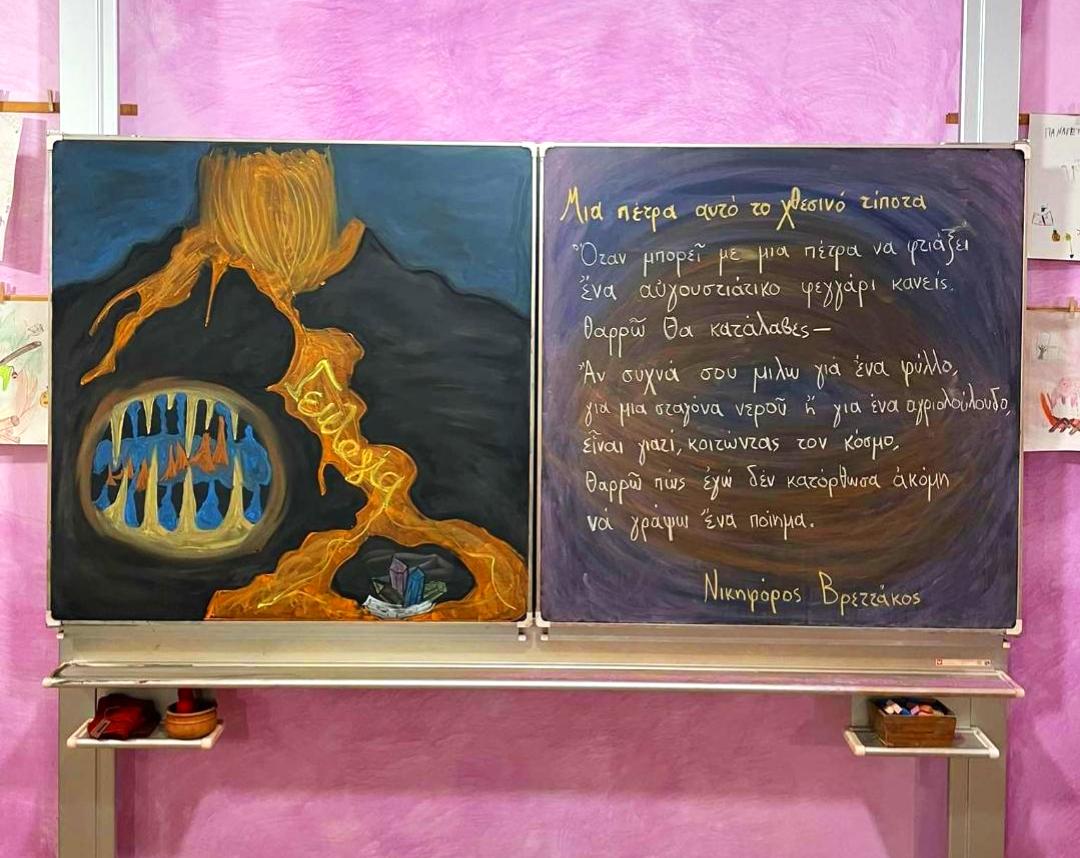 Γεωλογία
Μια πέτρα αυτό το χθεσινό τίποτα
Ὅταν μπορεῖ με μια πέτρα να φτιάξει
ἕνα αὐγουστιάτικο φεγγάρι κανείς.
θαρρῶ θα κατάλαβες—
Ἄν συχνά σου μιλω γιά ἕνα φύλλο,
για μια σταγόνα νεροῦ ἤ για ἕνα αγριολούλουδο,
εἶναι γιατί, κοιτώντας τον κόσμο,
θαρρῶ πώς ἐγώ δέν κατόρθωσα ἀκόμη
νά γράψω ἕνα ποίημα.
Νικηφόρος Βρεττάκος